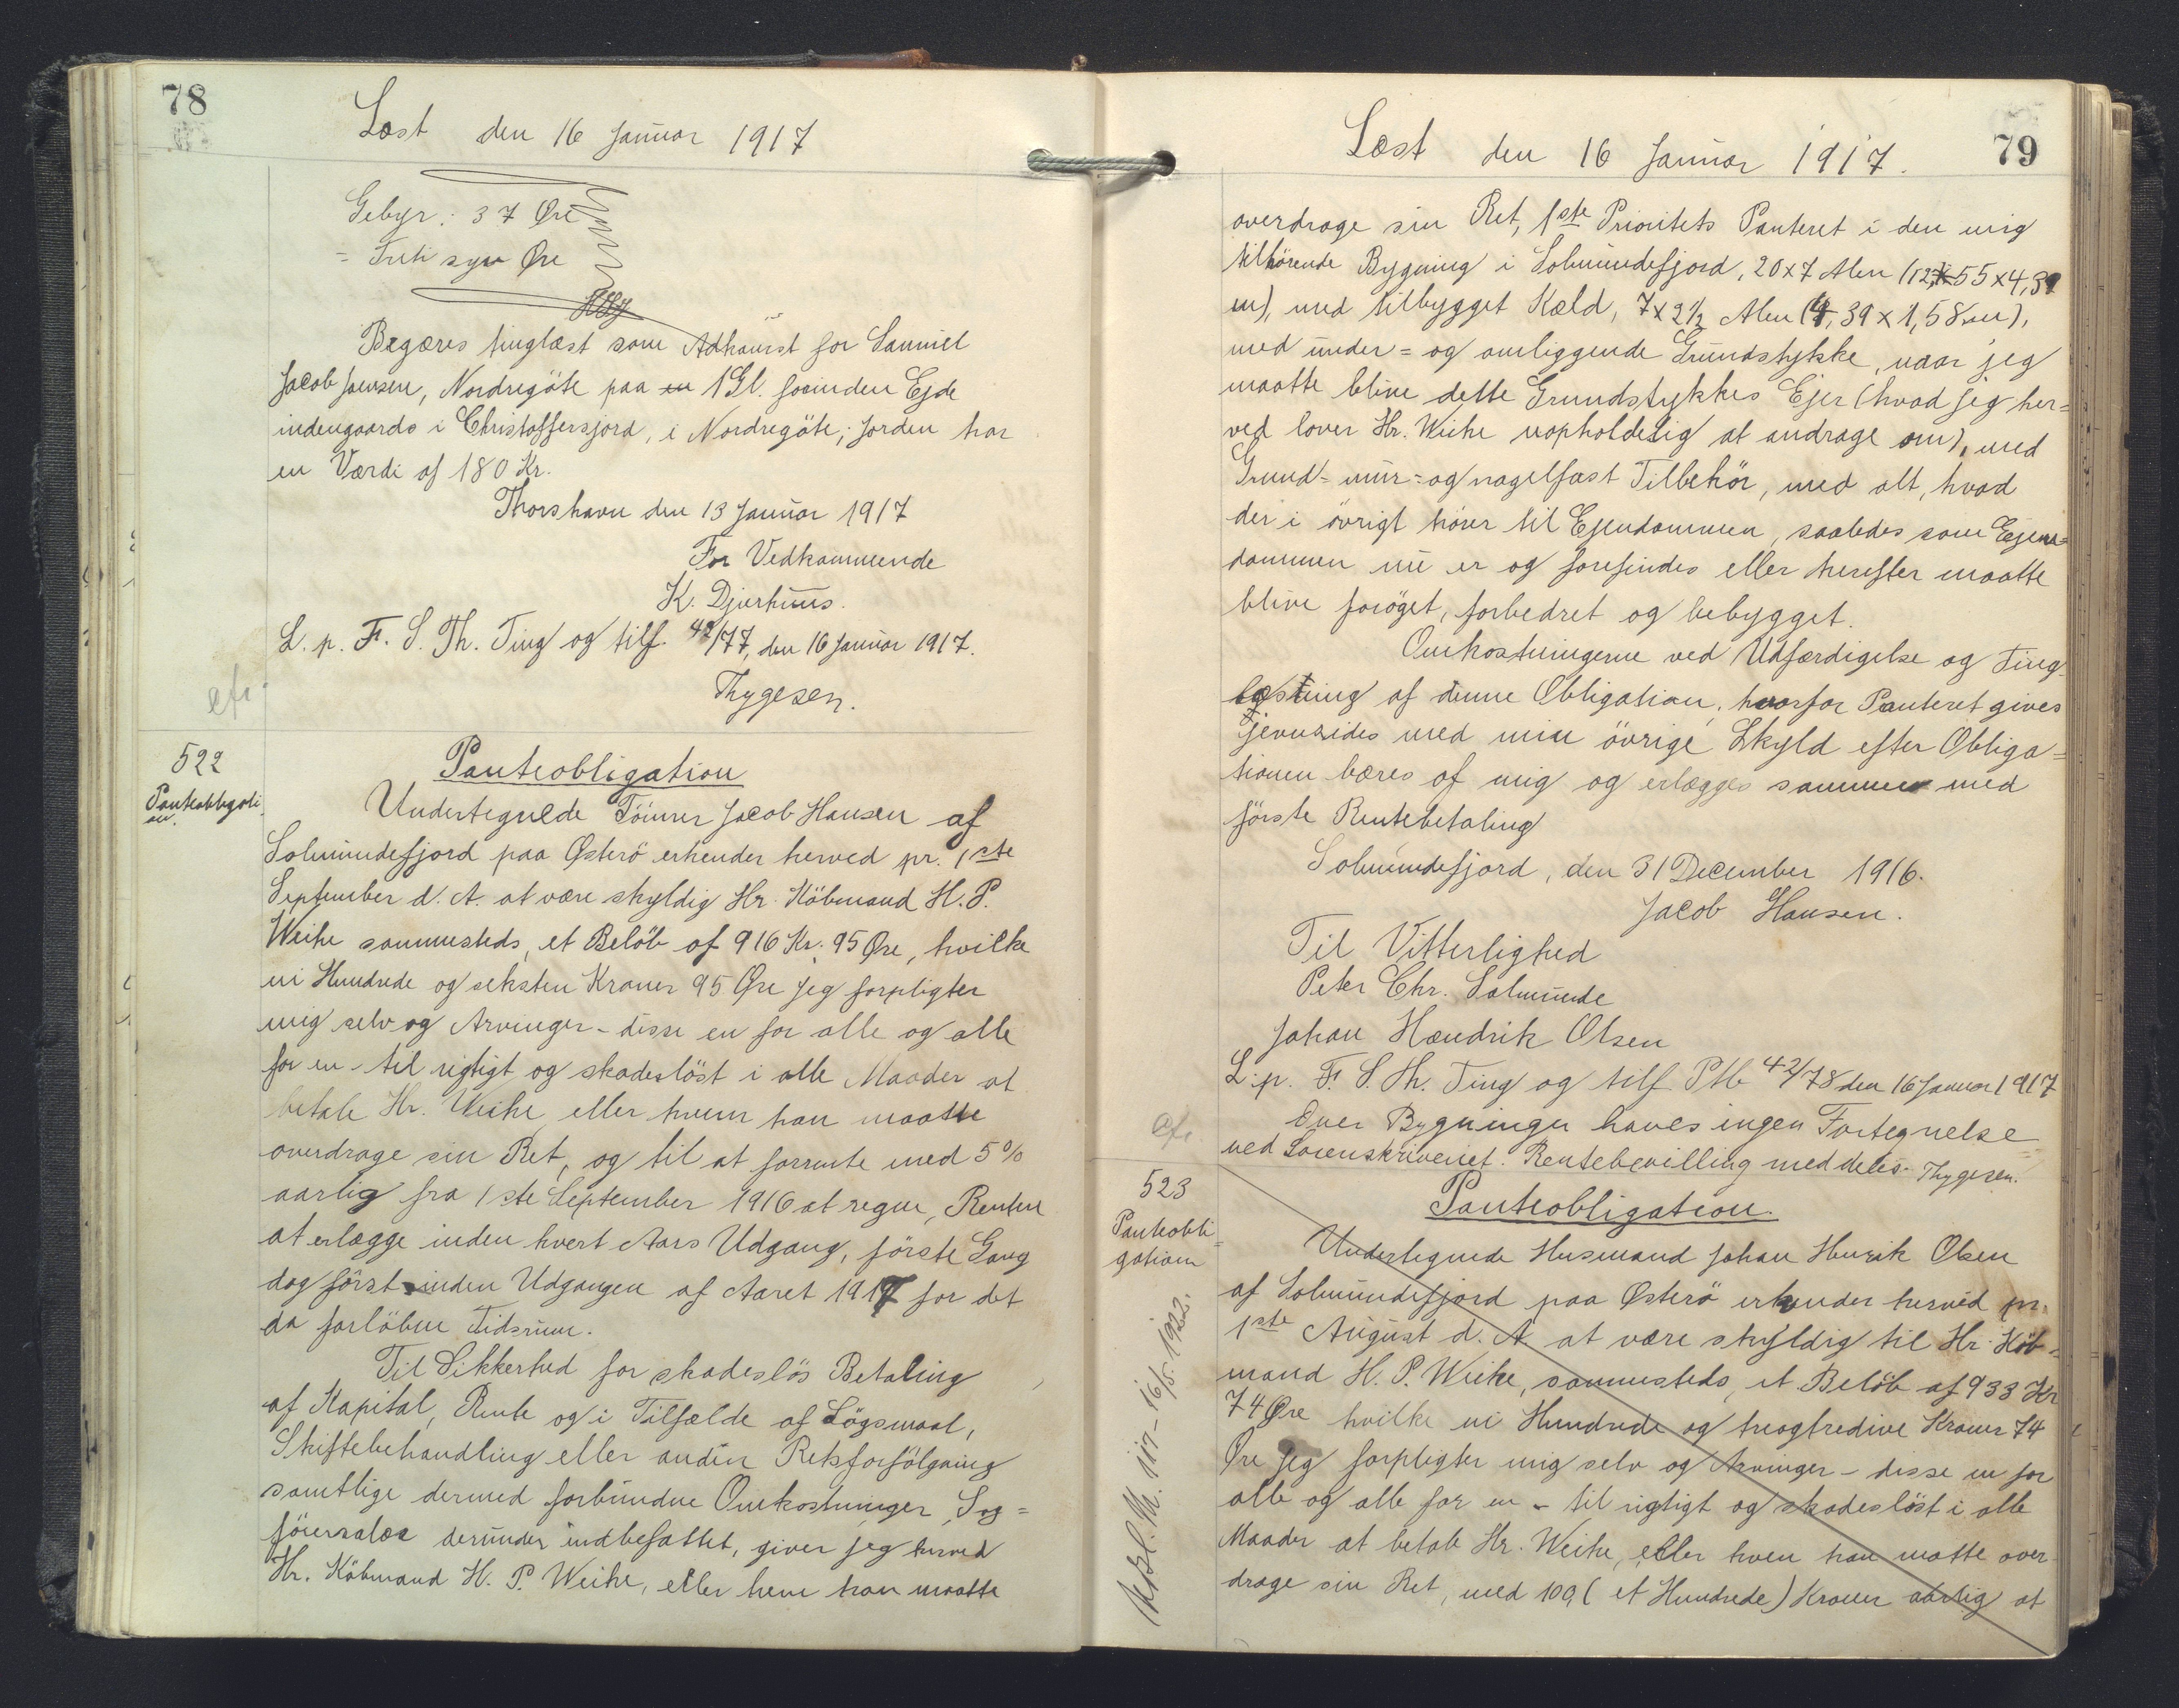 78
Læst den 16 Januar 1917
Gebyr: 37 Øre
= Treti syv Øre
Begæres tinglæst som Adkomst for Samuel
Jacob Joensen, Nordregöte paa en 1 Gl. forinden Ejde
indengaards i Christoffersjord, i Nordregöte; Jorden har
en Værdi af 180 Kr.
Thorshavn den 13 Januar 1917
For Vedkommende
K. Djurhuus.
L. p. F. S. Th. Ting og tilf. 42/77, den 16 Januar 1917.
Thygesen.
cfr.
522
Panteobligati
on.
Panteobligation
Undertegnede Tömrer Jacob Hansen af
Solmundefjord paa Österö erkender herved pr. 1ste
September d. A. at være skyldig Hr. Köbmand H. P.
Weihe sammesteds, et Belöb af 916 Kr. 95 Øre, hvilke
ni Hundrede og seksten Kroner 95 Øre jeg forpligter
mig selv og Arvinger - disse en for alle og alle
for en - til rigtigt og skadeslöst i alle Maader at
betale Hr. Weihe eller hvem han maatte
overdrage sin Ret, og til at forrente med 5%
aarlig fra 1ste September 1916 at regne, Renten
at erlægge inden hvert Aars Udgang, förste Gang
dog först inden Udgangen af Aaret 1917 for det
da forlöbne Tidsrum.
Til Sikkerhed for skadeslös Betaling
af Kapital, Rente og i Tilfælde af Lögsmaal,
Skiftebehandling eller anden Retsforfölgning
samtlige dermed forbundne Omkostninger, Sag=
förersalær derunder indbefattet, giver jeg herved
Hr. Köbmand H. P. Weihe, eller hem han maatte
79
Læst den 16 Januar 1917.
overdrage sin Ret, 1ste Prioritets Panteret i den mig
tilhörende Bygning i Solmundefjord, 20x7 Alen (12,55x4,39
m), med tilbygget Kæld, 7x2½ Alen (4,39x1,58 m),
med under= og omliggende Grundstykke, naar jeg
maatte blive dette Grundstykkes Ejer (hvad jeg her=
ved lover Hr. Weihe uopholdelig at andrage om), med
Grund= mur= og nagelfast Tilbehör, med alt, hvad
der i övrigt hörer til Ejendommen, saaledes som Ejen=
dommen nu er og forefindes eller herefter maatte
blive foröget, forbedret og bebygget.
Omkostningerne ved Udfærdigelse og Ting
læsning af denne Obligation, hvorfor Panteret gives
jevnsides med min övrige Skyld efter Obliga=
tionen bæres af mig og erlægges sammen med
förste Rentebetaling
Solmundefjord, den 31 December 1916.
Jacob Hansen.
Til Vitterlighed
Peter Chr. Solmunde
Johan Hendrik Olsen
L. p. F. S. Th. Ting og tilf Ptb 42/78 den 16 Januar 1917
Over Bygninger haves ingen Fortegnelse
ved Sorenskriveriet. Rentebevilling meddeles. Thygesen.
cfr.
523
Panteobli=
gation
Panteobligation.
Undertegnede Husmand Johan Henrik Olsen
af Solmundefjord paa Österö erkender herved pr.
1ste August d. A. at være skyldig til Hr. Köb=
mand H. P. Weihe, sammesteds, et Belöb af 933 Kr
74 Øre hvilke ni Hundrede og treogtredive Kroner 74
Øre jeg forpligter mig selv og Arvinger - disse en for
alle og alle for en - til rigtigt og skadeslöst i alle
Maader at betale Hr. Weihe, eller hvem han matte over
drage sin Ret, med 100, (et Hundrede) Kroner aarlig at
16/5. 1922.